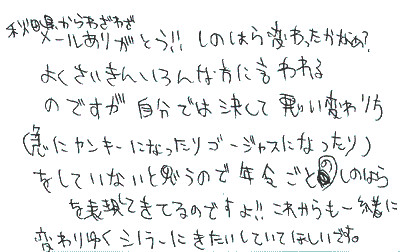 秋田県からわざわざ
メールありがとう!! しのはら変わったかなぁ?
よくさいきんいろんな方に言われる
のですが 自分では決して悪い変わりら
(急にヤンキーになったりゴージャスになったり)
をしていないと思うので 年令ごとの しのはら
を表現してきてるのですよ!! これからも一緒に
変わりゆく にきたいしていてほしいです。